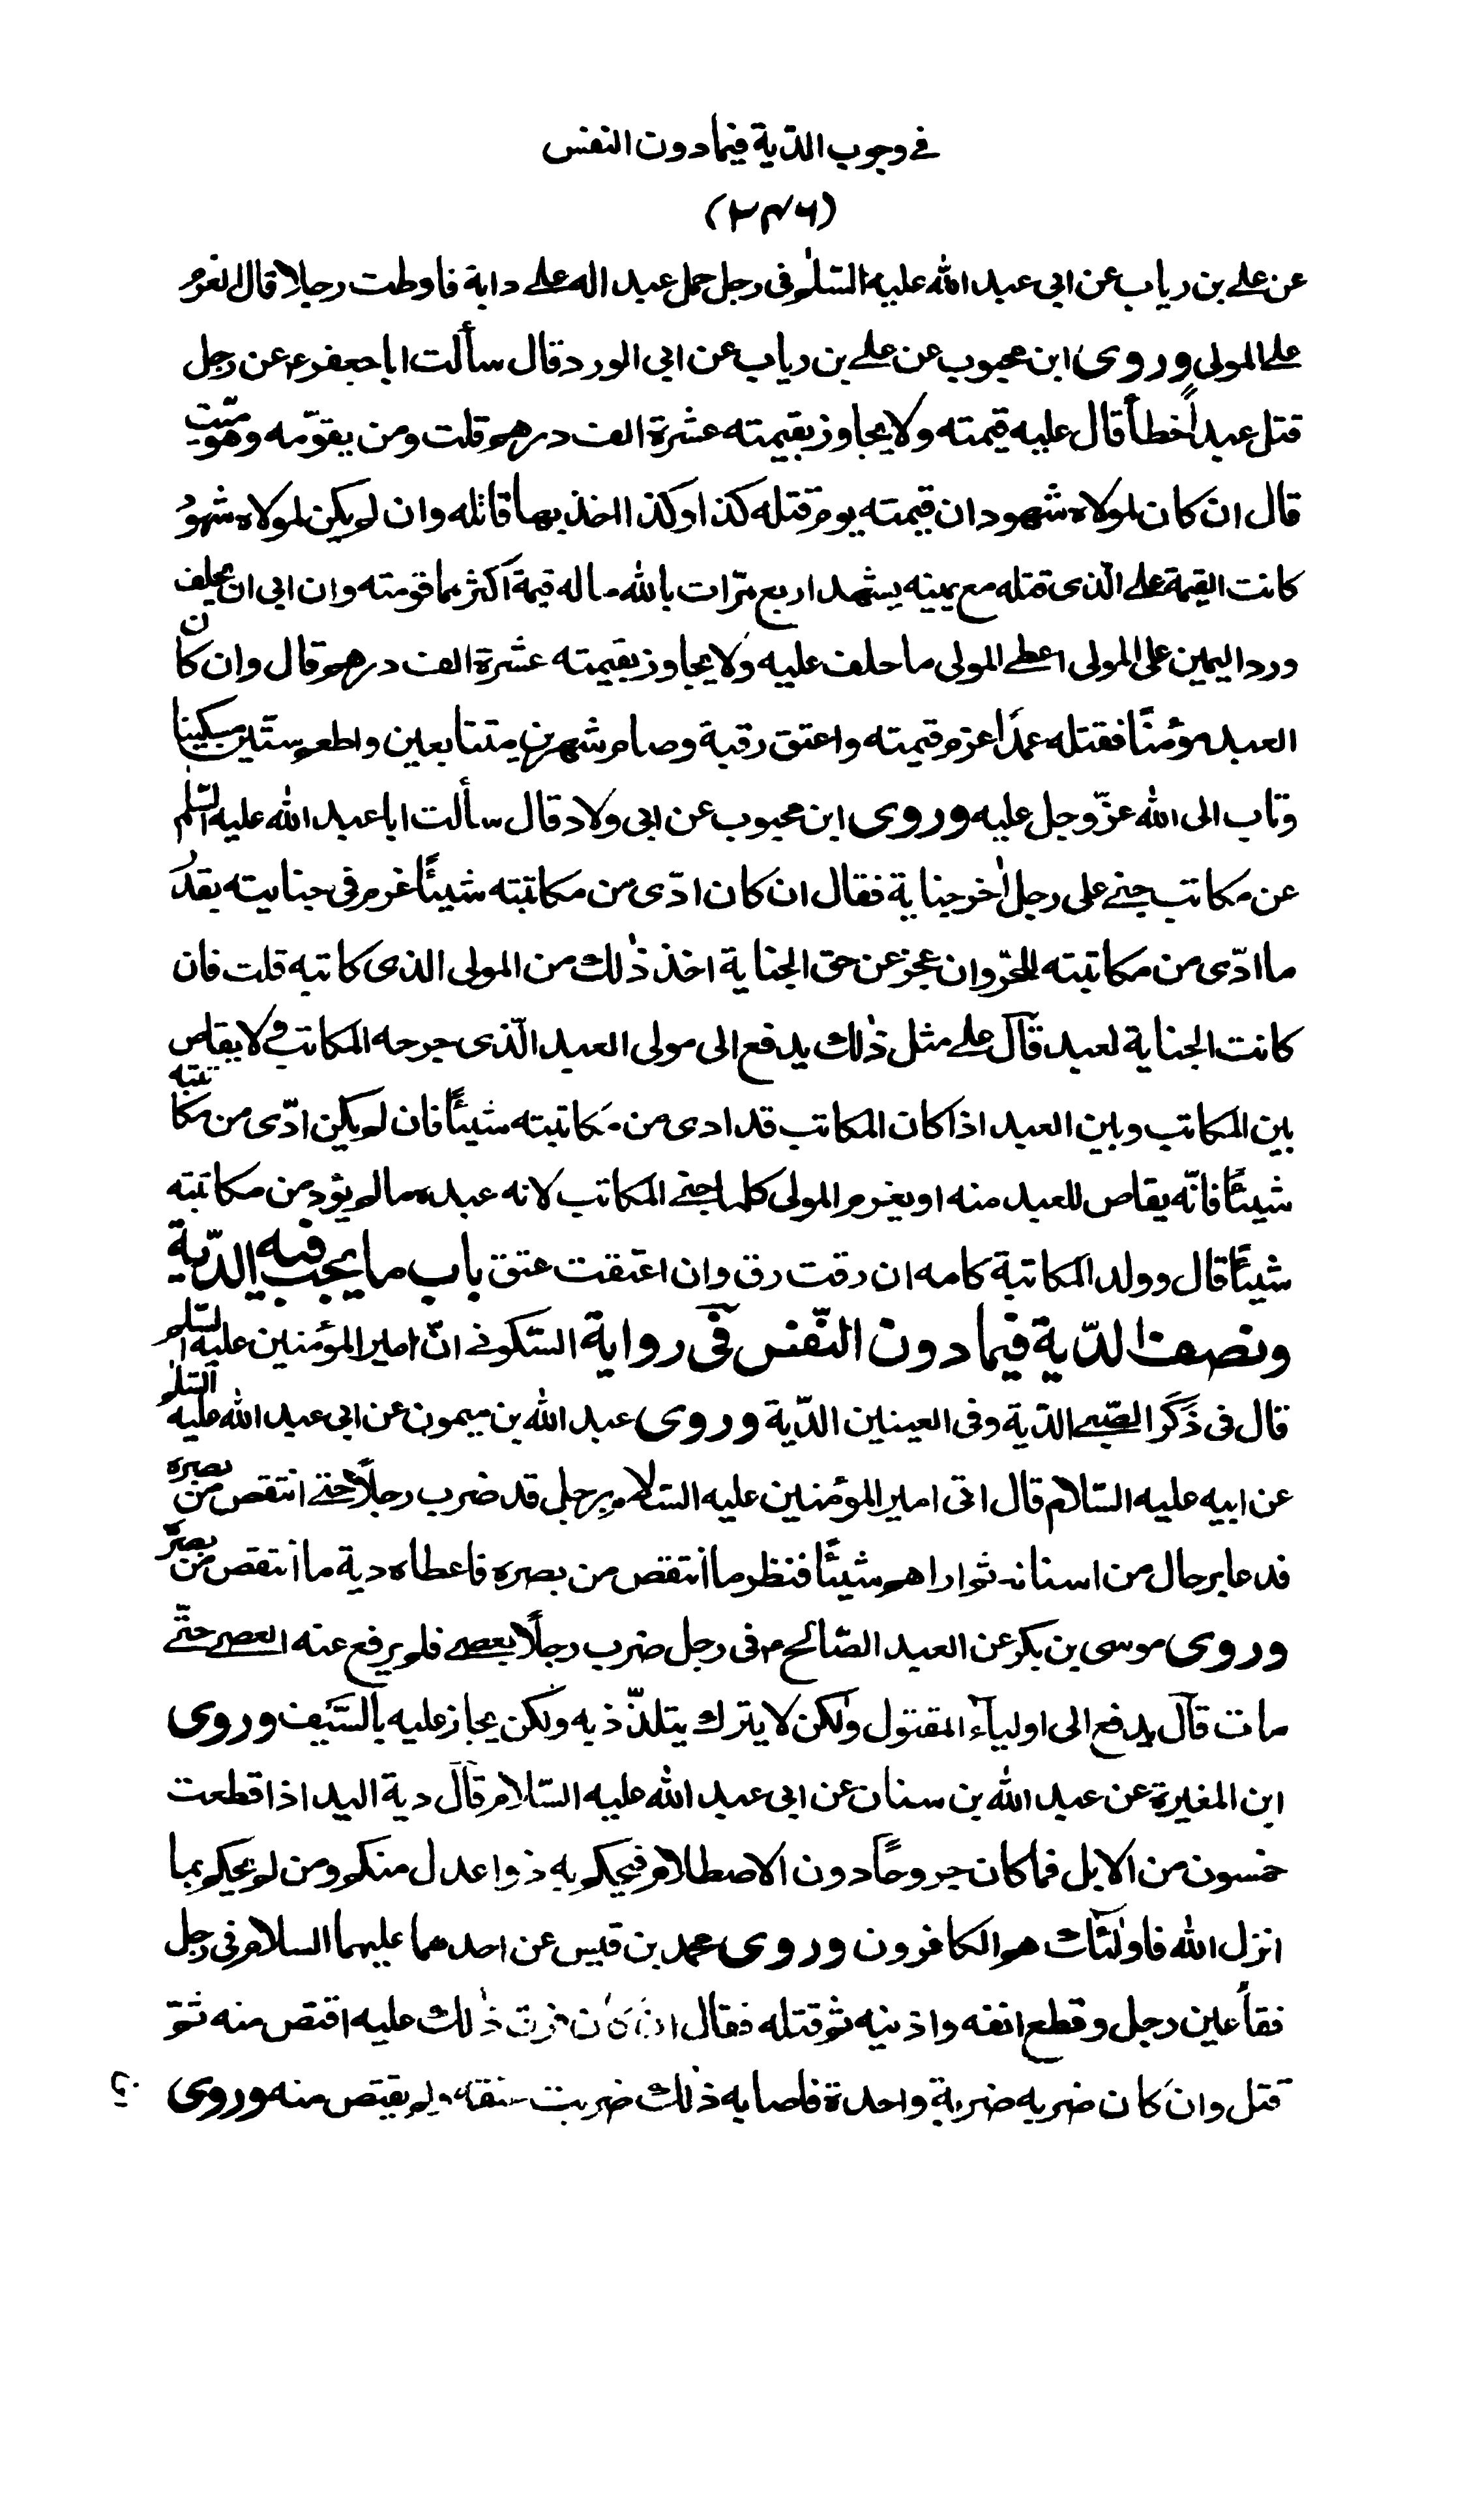 في وجوب الدّية فيما دون النفس
(٣٤٦)
عن علي بن رياب عن ابي عبد الله عليه السّلم في رجل حمل عبد اله على دابة فاوطت رجلا قال الغرم
على المولى وروى ابن محبوب عن علي بن رياب عن ابي الورد قال سألت ابا جعفر ع عن رجل
قتل عبداً خطأ قال عليه قيمته ولا يجاوز بقيمته عشرة الف درهم قلت ومن يقوّمه وهو ميّت
قال ان كان لمولاه شهود ان قيمته يوم قتله كذا وكذا اخذ بها قاتله وان لم يكن لمولاه شهود
كانت القيمة على الّذى قتله مع يمينه يشهد اربع مرّات بالله ماله قيمة اكثر مما قومته وان ابى ان يحلف
ورد اليمين على المولى اعطى المولى ما حلف عليه ولا يجاوز بقيمته عشرة الف درهم قال وان كان
العبد مؤمنًا فقتله عمدًا اغرم قيمته واعتق رقبة وصام شهرين متتابعين واطعم ستّين مسكينا
وتاب الى الله عزّ وجل عليه وروى ابن محبوب عن ابي ولاد قال سألت ابا عبد الله عليه السّلم
عن مكاتب جنى على رجل اٰخر جناية فقال ان كان ادّى من مكاتبته شيئًا غرم في جنايته بقدر
ما ادّى من مكاتبته للحرّ وان عجز عن حق الجناية اخذ ذٰلك من المولى الذى كاتبه قلت فان
كانت الجناية لعبد قال على مثل ذٰلك يدفع الى مولى العبد الّذى جرحه المكاتب ولا يقاص
بين المكاتب وبين العبد اذا كان المكاتب قد ادى من مكاتبته شيئًا فان لم يكن ادّى من مكاتبته
شيئًا فانّه يقاص للعبد منه او يغرم المولى كلما جنى المكاتب لانه عبده ما لم يؤد من مكاتبته
شيئًا قال وولد المكاتبة كامه ان رقت رق وان اعتقت عتق باب ما يجب فيه الدّية
ونصف الدّية فيما دون النّفس في رواية السّكوني انّ امير المؤمنين عليه السّلم
قال في ذَكَر الصّبي الدّية وفي العينين الدّية وروى عبد الله بن ميمون عن ابي عبد الله عليه السّلم
عن ابيه عليه السّلام قال اتى امير المؤمنين عليه السّلام برجل قد ضرب رجلًا حتى انتقص من بصره
فدعا برجال من اسنانه ثم اراهم شيئًا فنظر ما انتقص من بصره فاعطاه دية ما انتقص من بصره
وروى موسى بن بكر عن العبد الصّالح ع في رجل ضرب رجلًا بعصى فلم يرفع عنه العصى حتّى
مات قال يدفع الى اولياء المقتول ولكن لا يترك يتلذّذ به ولكن يجاز عليه بالسّيف وروى
ابن المغيرة عن عبد الله بن سنان عن ابي عبد الله عليه السّلام قال دية اليد اذا قطعت
خمسون من الابل فما كان جروحًا دون الاصطلام فيحكم به ذوا عدل منكم ومن لم يحكم بما
انزل الله فاولٰئك هم الكافرون وروى محمد بن قيس عن احدهما عليهما السلام في رجل
فقأ عين رجل وقطع انفه واذنيه ثم قتله فقال ان كان فرق ذٰلك عليه اقتص منه ثمّ
قتل وان كان ضربه ضربة واحدة فاصابه ذٰلك ضربت عنقه ولم يقتص منه وروى